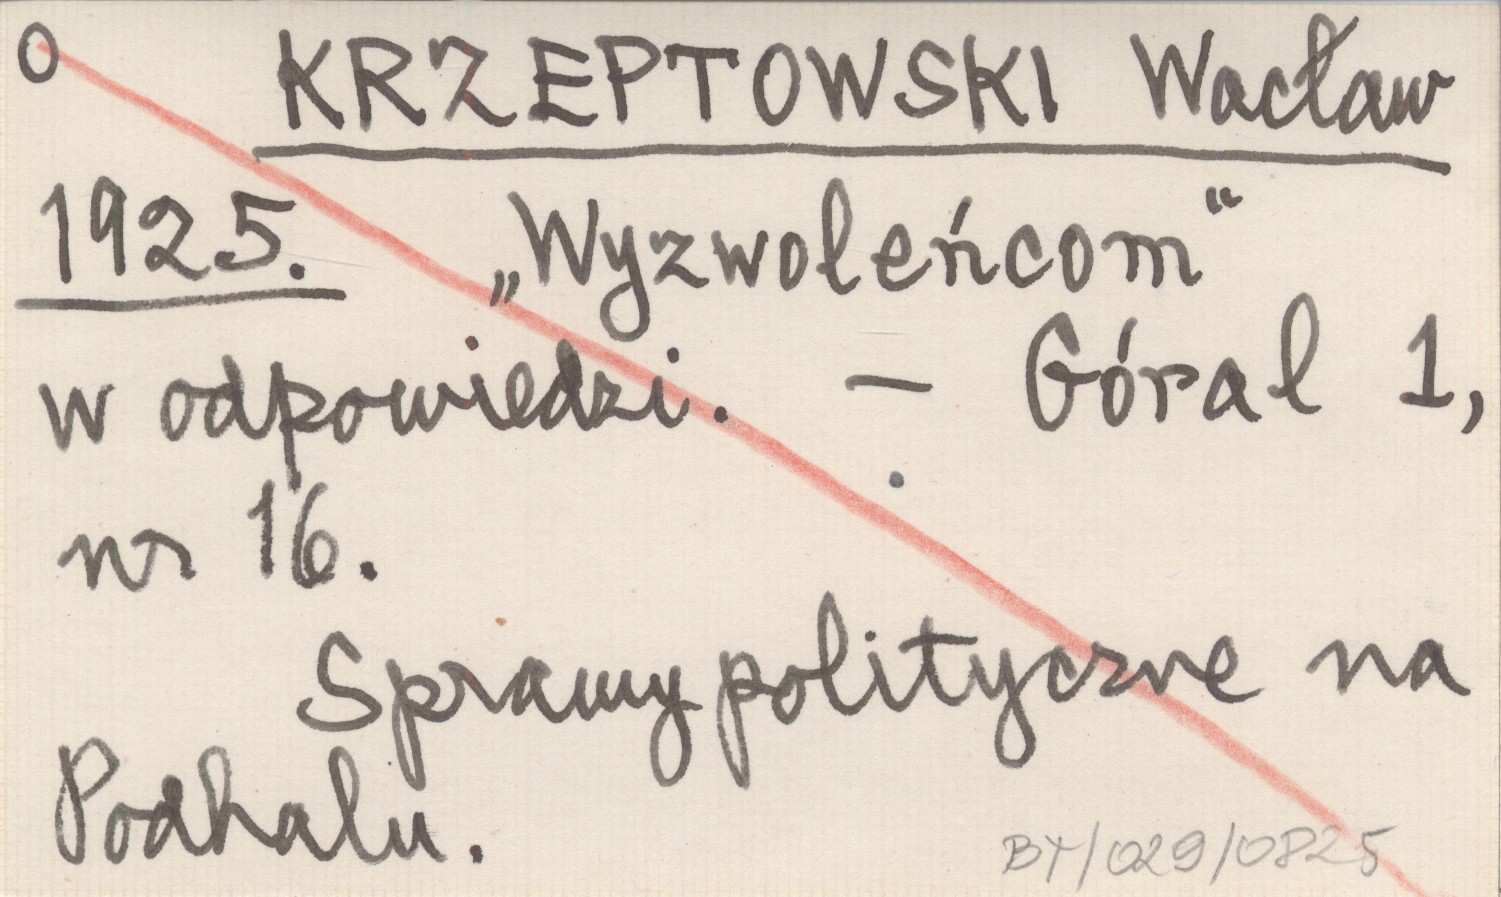 O KRZEPTOWSKI Wacław
1925. „Wyzwoleńcom“
w odpowiedzi. — Góral 1,
nr 16.
Sprawy polityczne na
Podhalu.
BT/029/0825